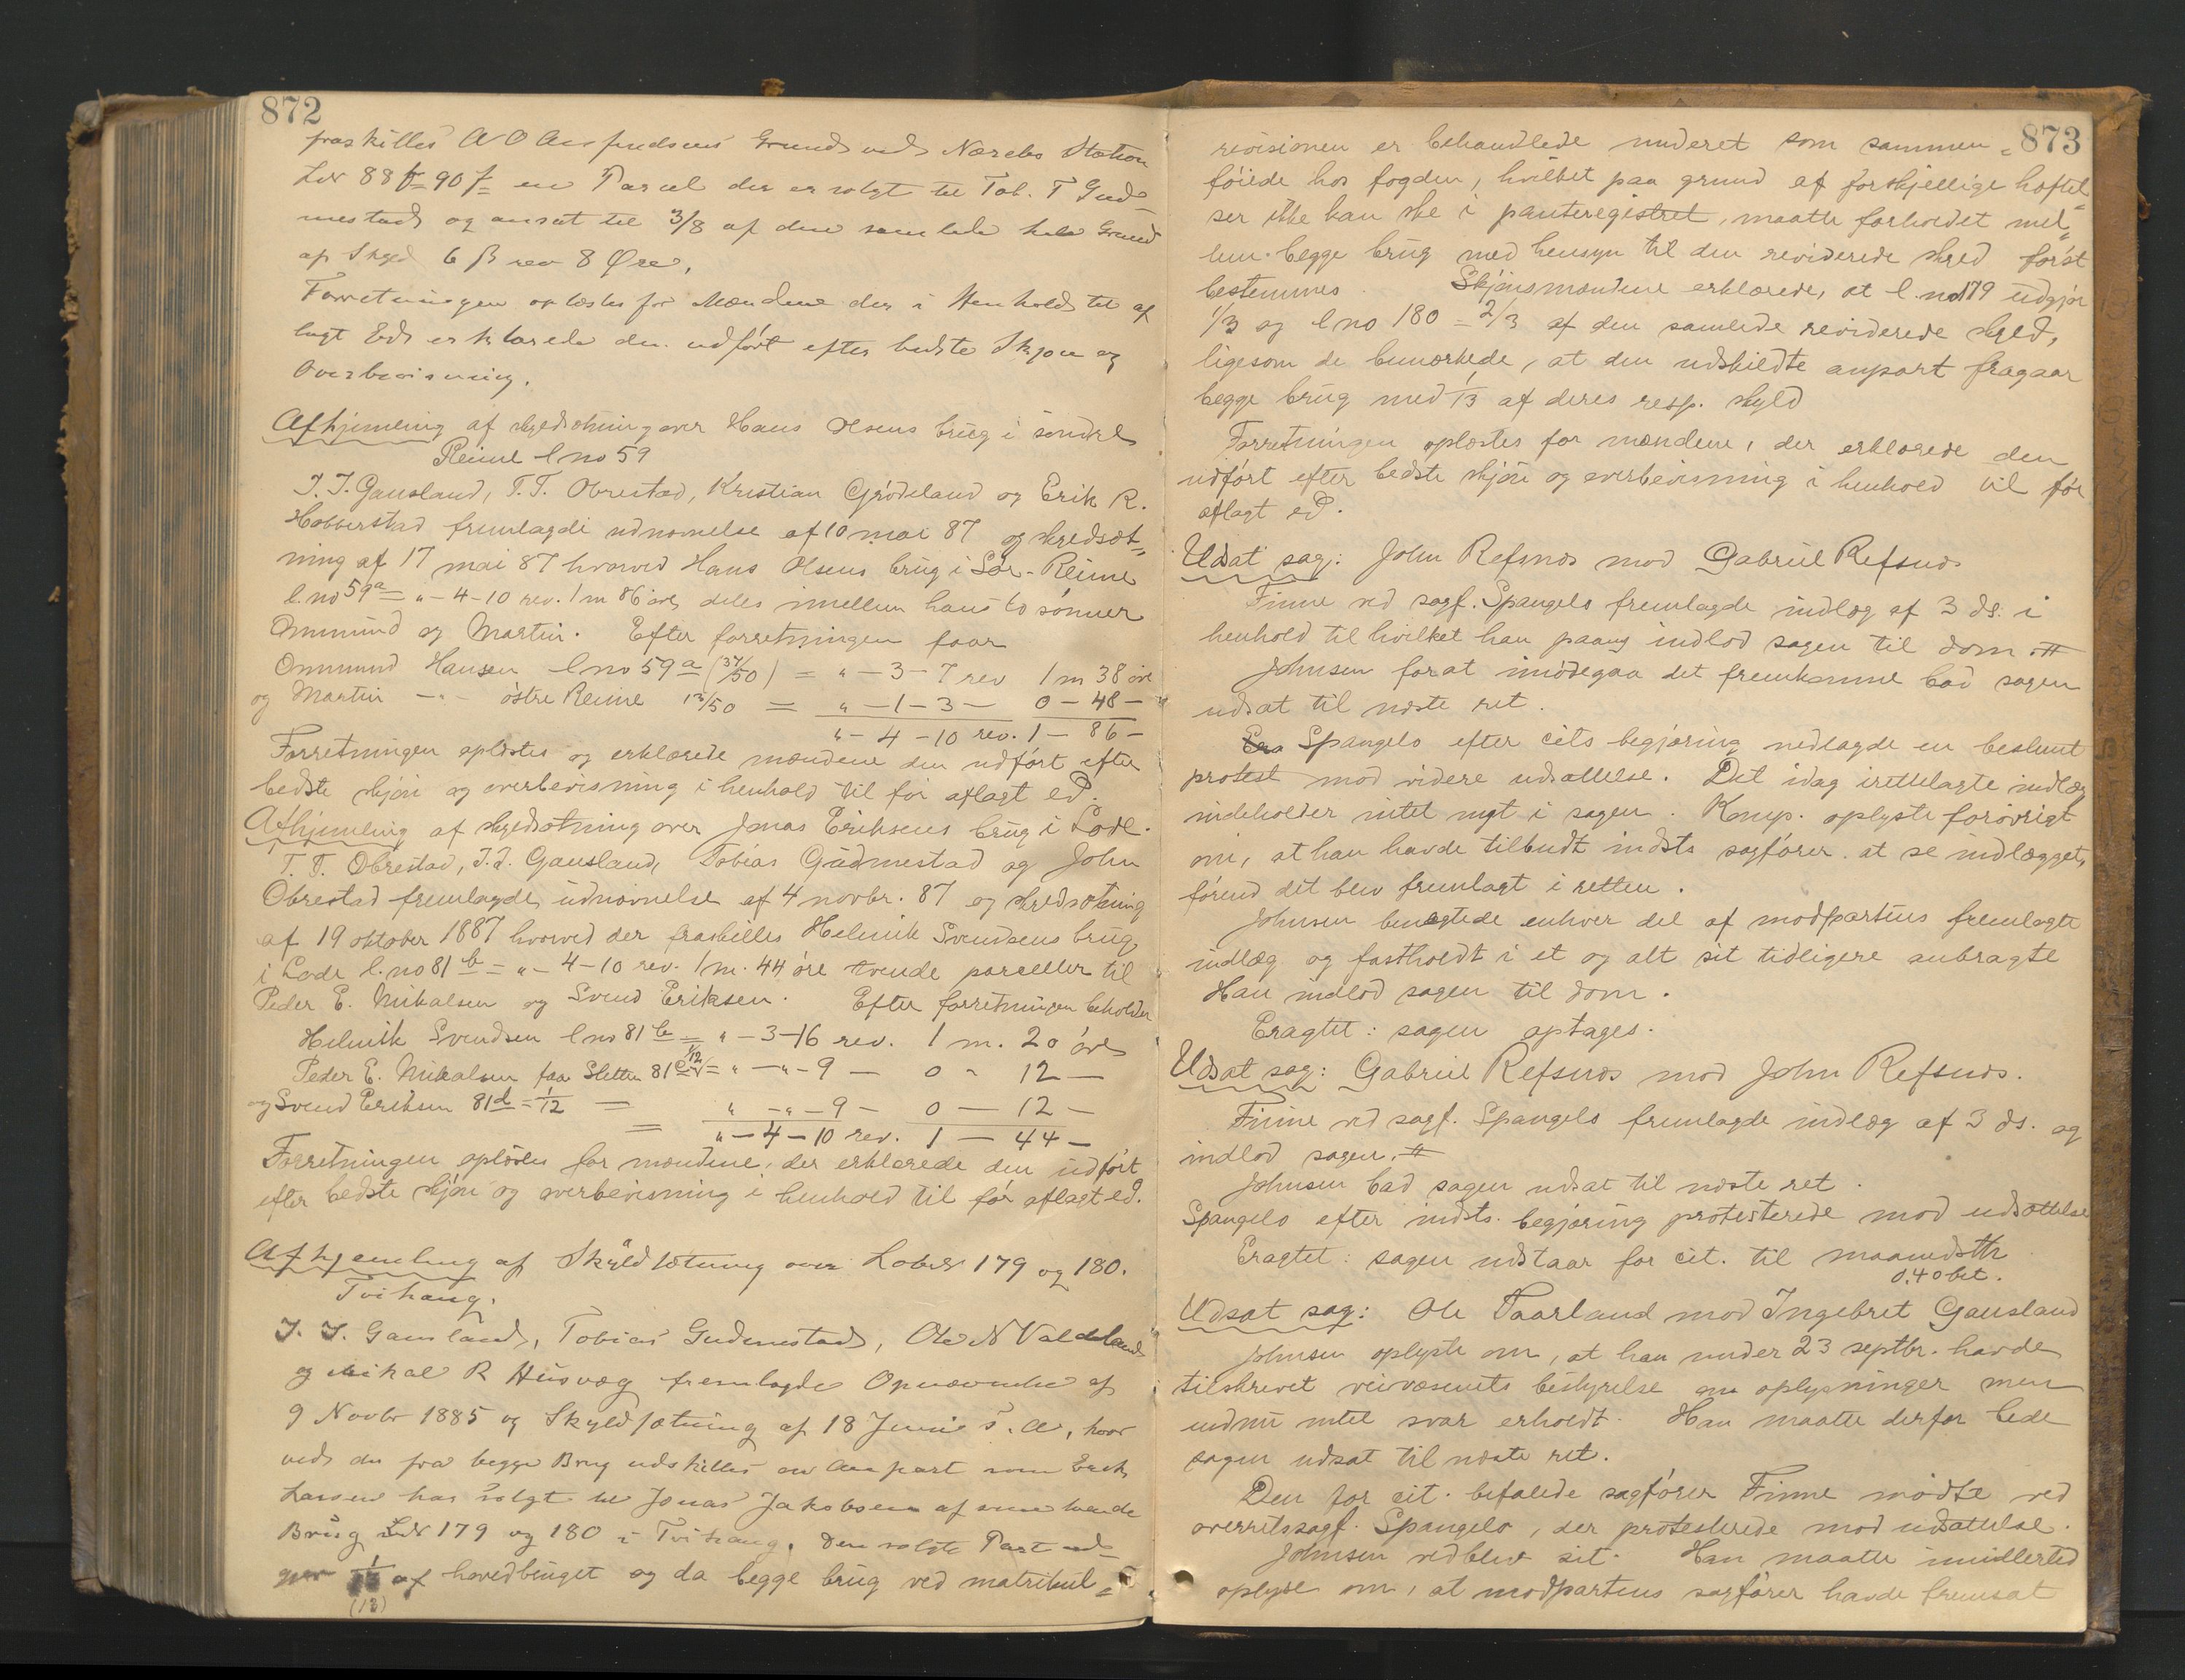 872
fraskilles A O Aufindsens Grund ved Nærebø Station
LNr 88 f = 90 f = en Parcel der er solgt til Tob. T Gud-
mestad og ansat til 3/8 af den samlede hele Grund
af Skyld 6 β rev 8 Øre.
Forretningen oplæstes for Mændene der i Henhold til af
lagt Ed erklærede den udført efter bedste Skjøn og
Overbevisning.
Afhjemling af skyldsætning over Hans Olsens brug i søndre
Reime l no 59
J. J. Gausland, T. T. Obrestad, Kristian Grødeland og Erik R.
Hobberstad fremlagde udnævnelse af 10 mai 87 og skyldsæt-
ning af 17 mai 87 hvorved Hans Olsens brug i Sør-Reime
l. no 59a = „ - 4 - 10 rev. 1 m 86 øre, deles imellem hans to sønner
Ommund og Martin. Efter forretningen faar
Ommund Hansen l no 59 a (37/50) = „ - 3 - 7 rev 1 m 38 øre
og Martin — „ østre Reime 13/50 = „ - 1 - 3 — 0 - 48 —
„ - 4 - 10 rev. 1 - 86 —
Forretningen oplæstes og erklærede mændene den udført efter
bedste skjøn og overbevisning i henhold til før aflagt ed.
Afhjemling af skyldsætning over Jonas Eriksens brug i Lode.
T. T. Obrestad, J. J. Gausland, Tobias Gudmestad og John
Obrestad fremlagde udnævnelse af 4 novbr. 87 og skyldsætning
af 19 oktober 1887 hvorved der fraskilles Helmik Svendsens brug
i Lode l. no 81 b = „ - 4 - 10 rev. 1 m. 44 øre tvende parceller til
Peder E. Mikalsen og Svend Eriksen. Efter forretningen beholder
Helmik Svendsen l no 81 b = „ - 3 - 16 rev. 1 m. 20 øre
Peder E. Mikalsen faar Sletten 81 c 1/12 = „ - „ - 9 — 0 - 12 —
og Svend Eriksen 81 d = 1/12 = „ - „ - 9 — 0 — 12 —
= „ - 4 - 10 rev. 1 — 44 —
Forretningen oplæstes for mændene, der erklærede den udført
efter bedste skjøn og overbevisning i henhold til før aflagt ed.
Afhjemling af Skyldsætning over Løbnr 179 og 180.
Tvihaug.
J. J. Gausland, Tobias Gudmestad, Ole N Valdeland
og Mikal R Husvæg fremlagde Opnævnelse af
9 Novbr 1885 og Skyldsætning af 18 Juni s. A, hvor
ved der fra begge Brug udskilles en Anpart som Erik
Larsen har solgt til Jonas Jakobsen af sine tvende
Brug LNr 179 og 180 i Tvihaug. Den solgte Part ud-
gjør 1/13 af hovedbruget og da begge brug ved matrikul-
(13)
873
revisionen er behandlede underet som sammen-
føiede hos fogden, hvilket paa grund af forskjellige hæftel-
ser ikke kan ske i panteregistret, maatte forholdet mel-
lem begge brug med hensyn til den reviderede skyld først
bestemmes. Skjønsmændene erklærede, at l. no 179 udgjør
1/3 og l no 180 = 2/3 af den samlede reviderede skyld,
ligesom de bemærkede, at den udskildte anpart fragaar
begge brug med 1/13 af deres resp. skyld
Forretningen oplæstes for mændene, der erklærede den
udført efter bedste skjøn og overbevisning i henhold til før
aflagt ed.
Udsat sag: John Refsnæs mod Gabriel Refsnæs
Finne ved sagf. Spangelo fremlagde indlæg af 3 ds. i
henhold til hvilket han paany indlod sagen til dom. #
Johnsen forat imødegaa det fremkomne bad sagen
udsat til næste ret.
Spangelo efter cits begjæring nedlagde en bestemt
protest mod videre udsættelse. Det idag irettelagte indlæg
indeholder intet nyt i sagen. Komp. oplyste forøvrigt
om, at han havde tilbudt indsts sagfører at se indlægget,
førend det blev fremlagt i retten.
Johnsen benægtede enhver del af modpartens fremlagte
indlæg og fastholdt i et og alt sit tidligere anbragte
Han indlod sagen til dom.
Eragtet: sagen optages.
Udsat sag: Gabriel Refsnæs mod John Refsnæs.
Finne ved sagf. Spangelo fremlagde indlæg af 3 ds. og
indlod sagen. #
Johnsen bad sagen udsat til næste ret.
Spangelo efter indsts. begjæring protesterede mod udsættelse
Eragtet: sagen udstaar for cit. til maanedsth
0,40 bet.
Udsat sag: Ole Taarland mod Ingebret Gausland
Johnsen oplyste om, at han under 23 septbr. havde
tilskrevet veivæsenets bestyrelse om oplysninger men
endnu intet svar erholdt. Han maatte derfor bede
sagen udsat til næste ret.
Den for cit. befalede sagfører Finne mødte ved
overretssagf. Spangelo, der protesterede mod udsættelse.
Johnsen vedblev sit. Han maatte imidlertid
oplyse om, at modpartens sagfører havde fremsat